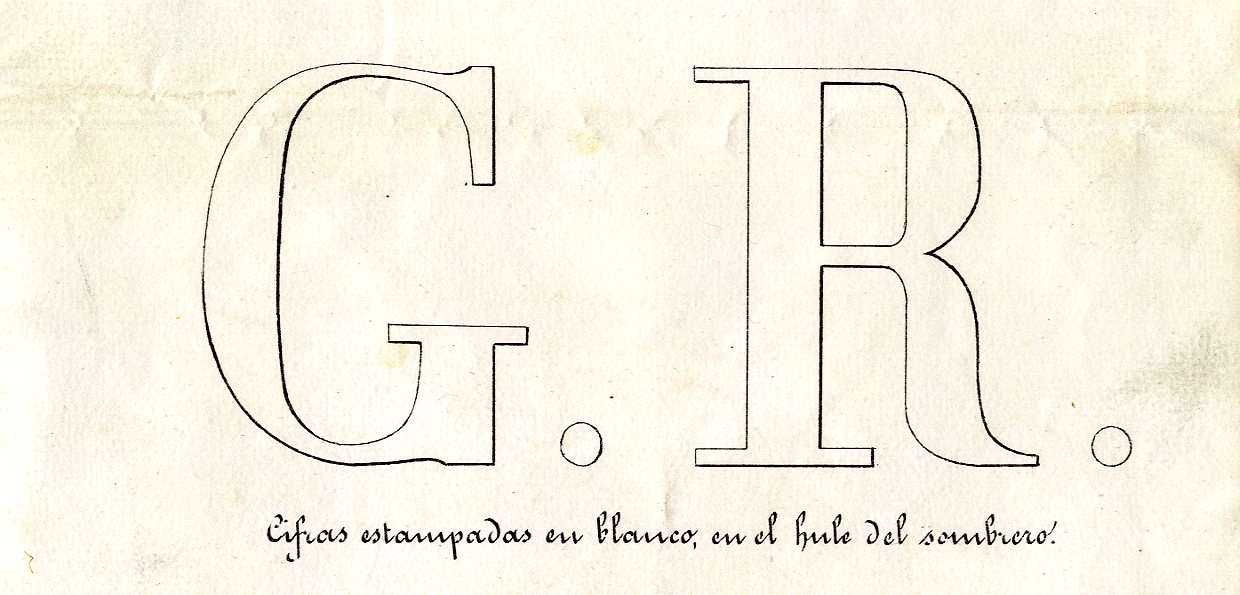 G. R.
Cifras estampadas en blanco, en el hule del sombrero.